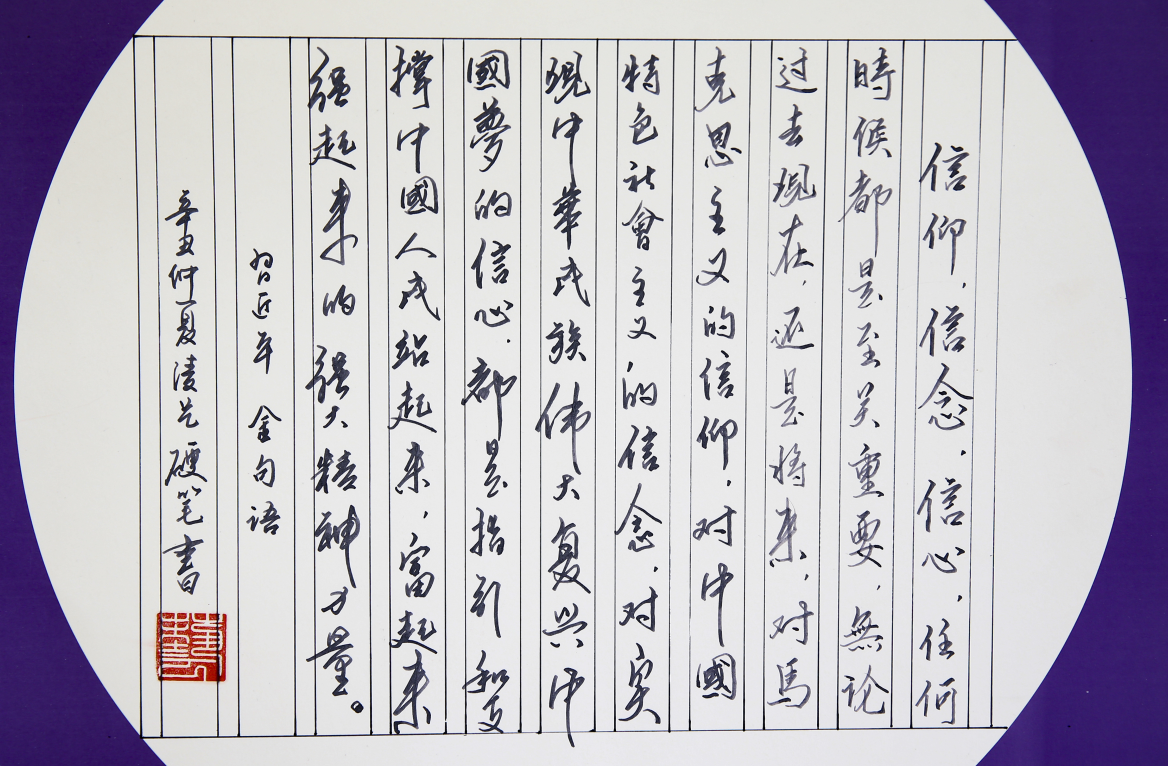 信仰，信念，信心，任何
時候都是至关重要，無論
过去現在，还是将来，对馬
克思主义的信仰，对中國
特色社會主义的信念，对实
現中華民族伟大复兴中
國夢的信心，都是指引和支
撑中國人民站起来，富起来
强起来的强大精神力量。
習近平 金句语
辛丑仲夏凌芝硬笔書